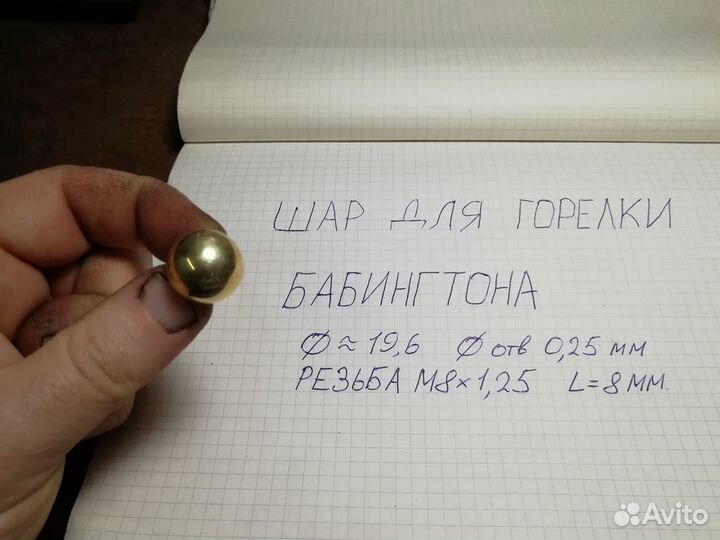 ШАР ДЛЯ ГОРЕЛКИ
БАБИНГТОНА
Ø ≈ 19,6 Ø отв 0,25 мм
РЕЗЬБА М8×1,25 L=8мм.
Avito